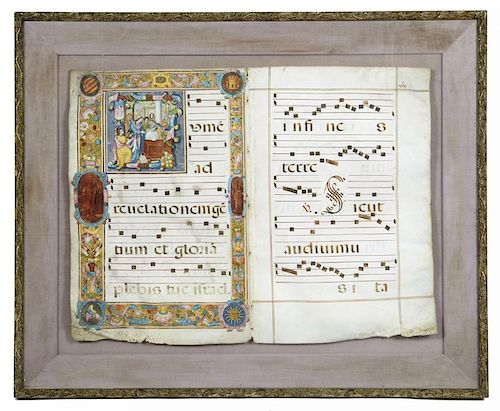 vmē
ad
revelationem gē
tium et gloriā
plebis tue israel.
viii
infine s
terre
v. Sicut
audivimu
s ita